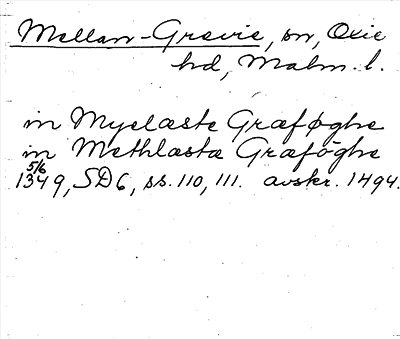 Mellan-Grevie, sn, Oxie
hd, Malm. l.
in Myelæste Græføghe
in Methlæstæ Græføghe
5/6
1349, SD 6, ss. 110, 111. avskr. 1494.